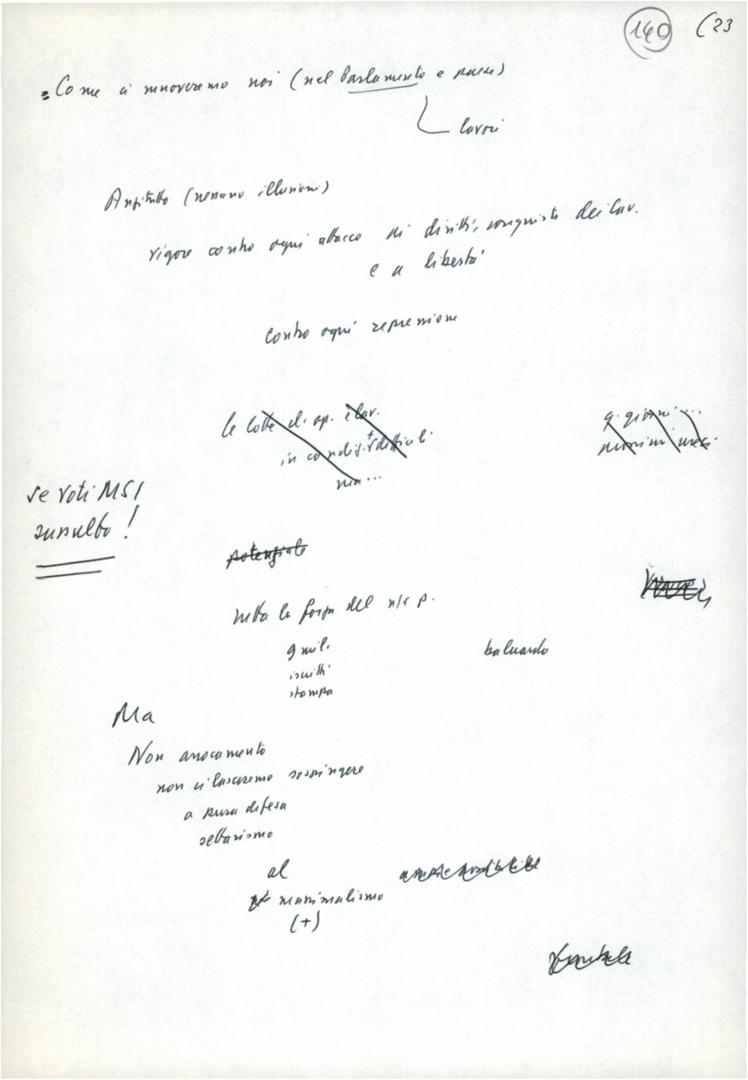 140 (23
= Come ci muoveremo noi (nel Parlamento e paese)
lavori
Anzitutto (nessuno illusioni)
vigore contro ogni attacco di diritti, conquiste dei lav.
e a libertà
contro ogni repressione
le lotte di op. e lav.
in condiz. + difficili
ma...
q. giorni...
prossimi mesi
se voti MSI
sussulto!
potenziale
tutta la forza del n/s p.
9 mil.
iscritti
stampa
baluardo
Ma
Non arroccamento
non ci lasceremo sospingere
a pura difesa
settarismo
al
massimalismo
(+)